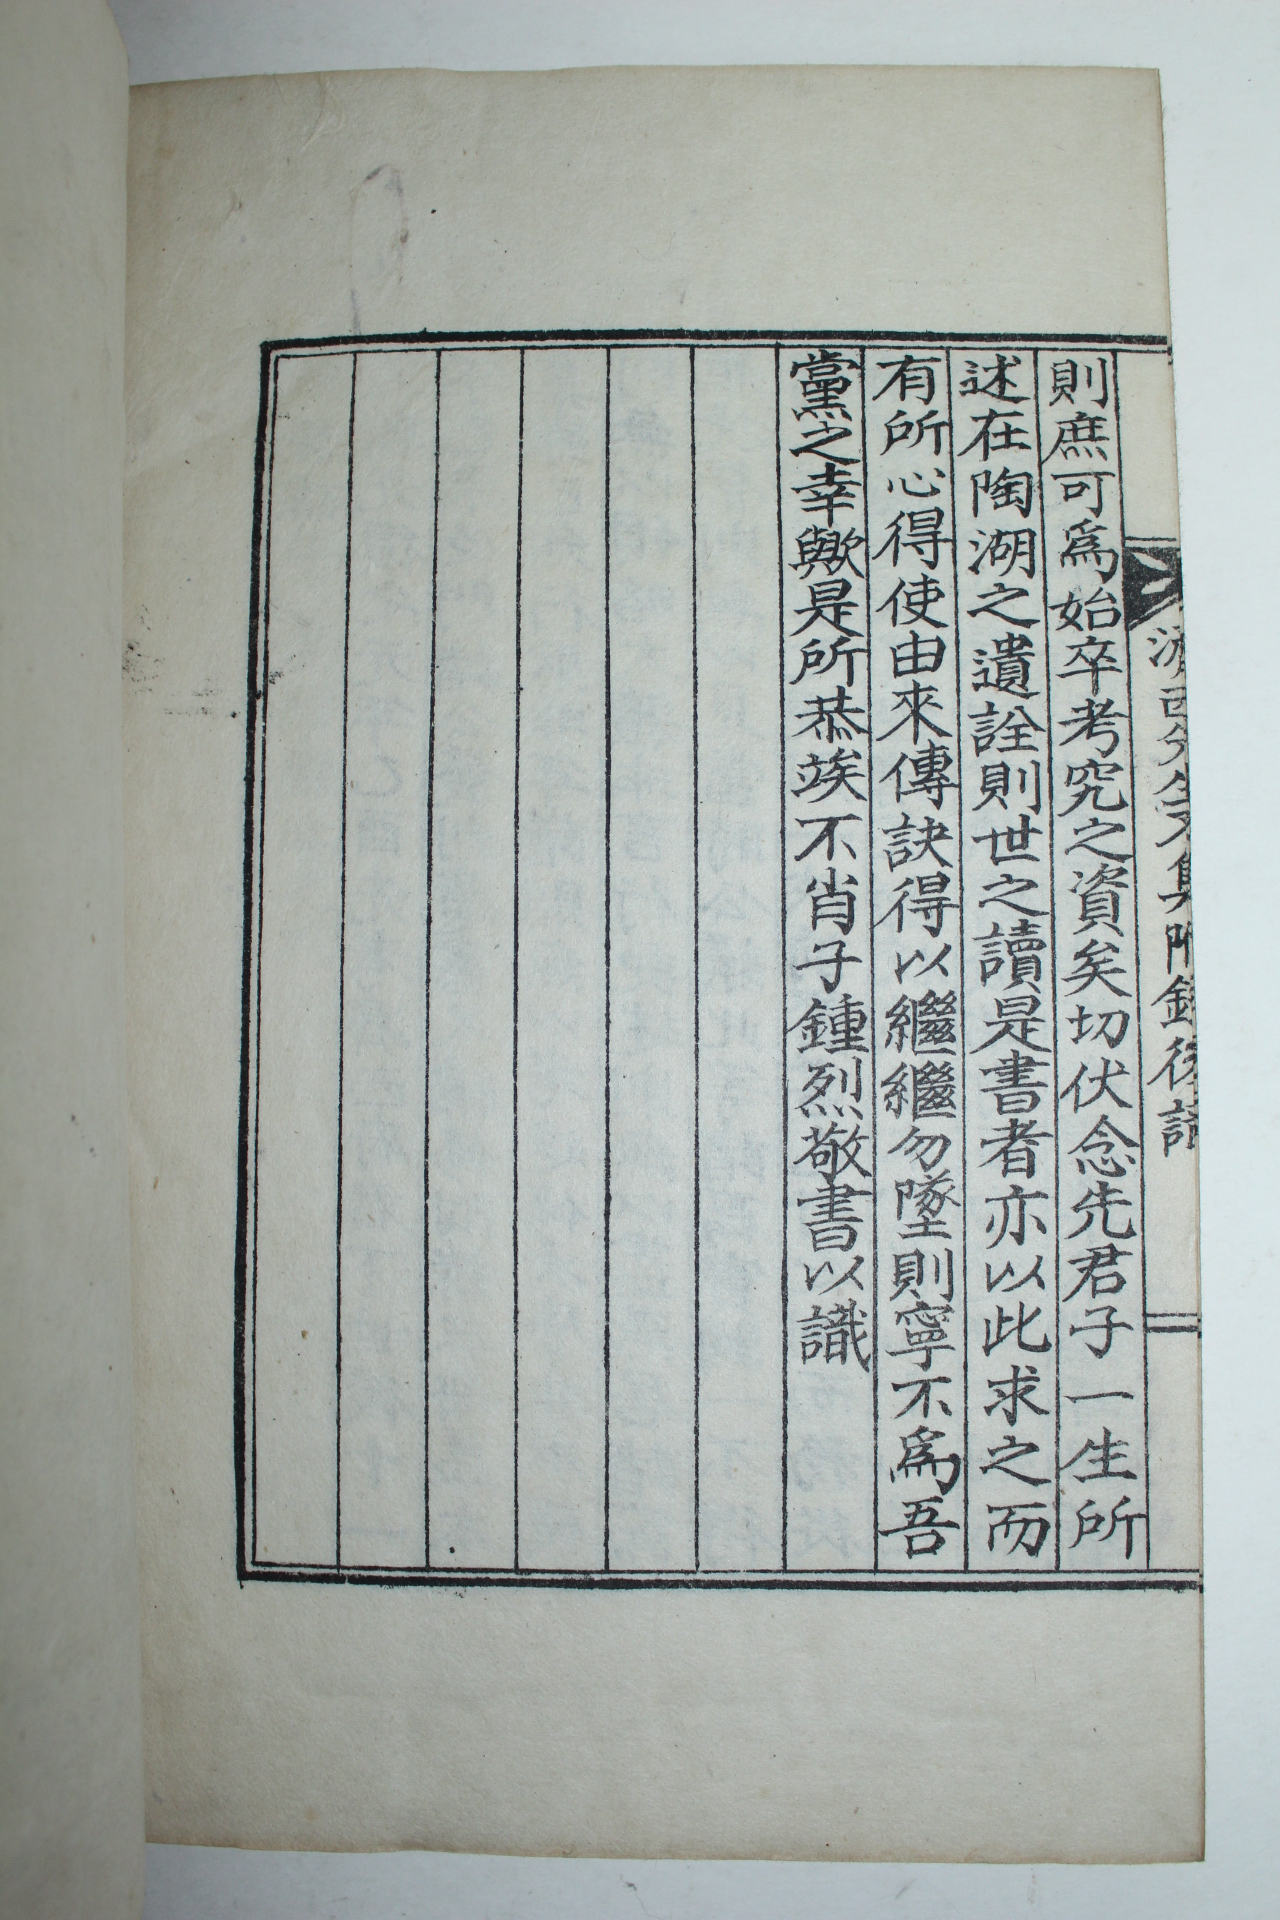 則庶可爲始卒考究之資矣切伏念先君子一生所
述在陶湖之遺詮則世之讀是書者亦以此求之而
有所心得使由來傳訣得以繼繼勿墜則寧不爲吾
黨之幸歟是所恭竢不肖子鍾烈敬書以識
濟西先生文集附錄後語